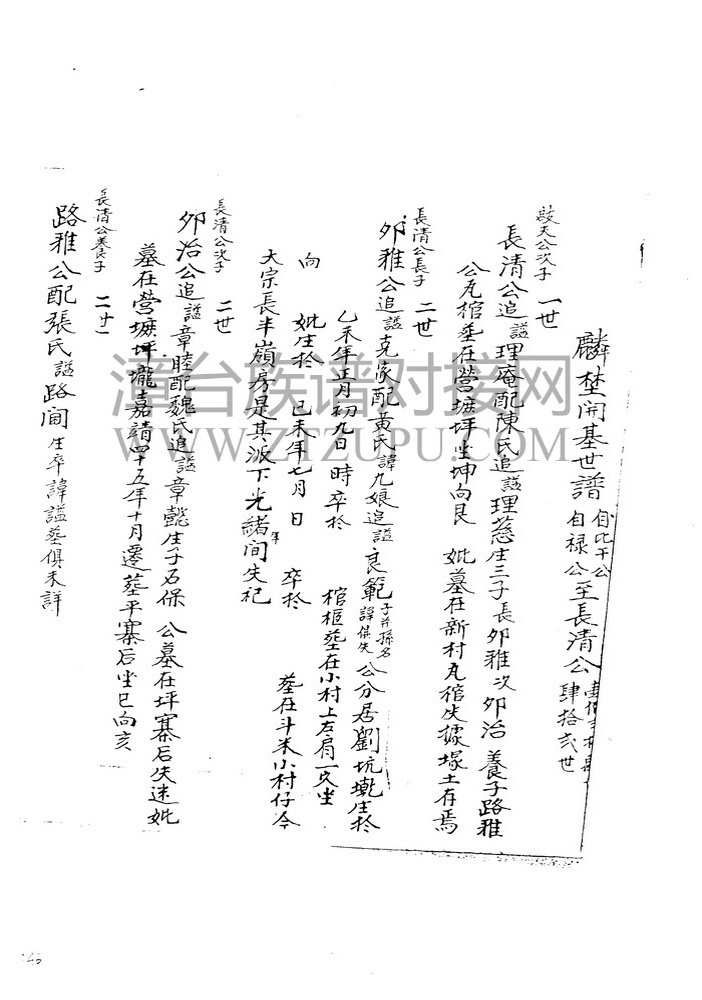 麟埜開基世譜 自比干公
自禄公至長清公 肆拾弍世
啟天公次子 一世
長清公追謚理庵配陳氏追謚理慈庄三子長夘雅次夘治 養子路雅
公瓦棺塟在营塘坪坐坤向艮 妣墓在新村瓦棺失據塚土存焉
長清公長子 二世
夘雅公追謚克家配黄氏諱九娘追謚良範 子并孫名諱俱失 公分居劉坑墘庄於
乙未年正月初九日 時卒於 棺柩塟在小村上左肩一穴坐
向 妣庄於 己未年七月 日 卒於 塟在斗米小村仔今
大宗長半嶺房是其派下光緒年間失祀
長清公次子 二世
夘治公追謚章睦配魏氏追謚章懿庄子石保 公墓在坪寨后失迷妣
墓在营塘坪壠嘉靖四十五年十月遷塟平寨后坐巳向亥
長清公養子 二世
路雅公配張氏謚路閫 生卒諱謚墓俱未詳
漳台族谱对接网
WWW.ZTZUPU.COM